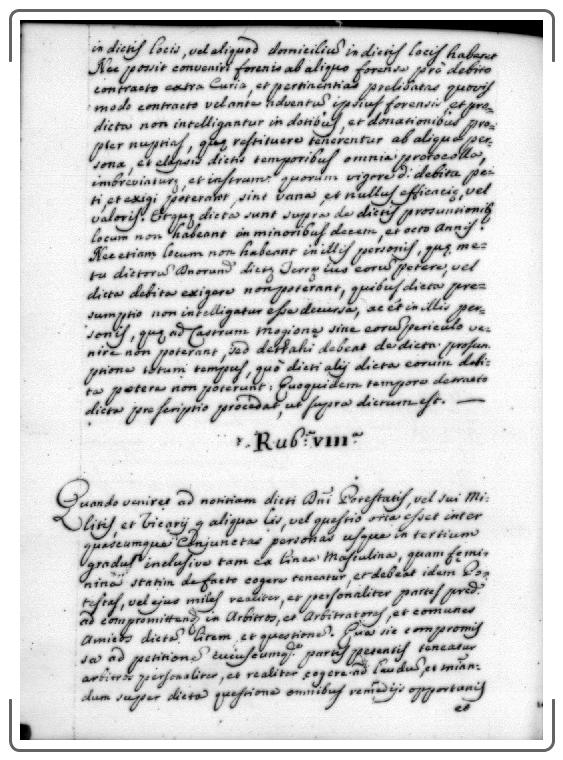 in dictis locis, vel aliquod domiciliũ in dictis locis haberet
Nec possit conveniri forensis ab aliquo forense prõ debito
contracto extra Curia, et pertinentias prelibatas quovis
modo contracto velante adventũ ipsius forensis et prę-
dicta non intelligantur in dotibus, et donationibus pro-
pter nuptias, quę restituere tenerentur ab aliqua per-
sona, et elapsis dictis temporibus omnia protocolla,
imbreviaturę, et instrum: quorum vigore di: debita pe-
ti, et exigi poterant, sint vana, et nullius efficacię, vel
valoris. Et quę dicta sunt supra de dictis prosuntionib9
locum non habeant in minoribus decem, et octo Annis.
Nec etiam locum non habeant in illis personis, quę me-
tu dictorũ Dnorum dictę Terrę ius eorũ petere, vel
dicta debita exigere non poterant, quibus dicta pre-
sumptio non intelligatur esse decursa, ac et in illis per-
sonis, quę ad Castrum Mogionę sine eorũ periculo ve-
nire non poterant, sed detrahi debeat de dicta prosun
ptione totum tempus, quõ dicti alij dicta eorum debi-
ta petere non poterunt: Quoquidem tempore detracto
dicta prescriptio procedat, ut supra dictum est. —
Rub.ᵃ VIII.ᵃ
Quando veniret ad notitiam dicti Dni Potestatis, vel sui Mi-
litis, et Vicarij q aliqua lis, vel questio oria esset inter
quascumque Conjunctas personas usque in tertium
gradus inclusive tam ex linea Masculina, quam fęmi-
nina statim de facto cogere teneatur, et debeat idem Po-
testas, vel ejus miles realiter, et personaliter partes pred.
ad compromittendũ in Arbitros, et Arbitratores, et comunes
Amicos dictã litem et questionẽ. Qua sic compromis
sa ad petitionẽ cuiuscumq partis petentis teneatur
arbitros personaliter, et realiter cogere ad Laudũ, et mãn-
dum super dicta questione omnibus remedijs opportunis
et